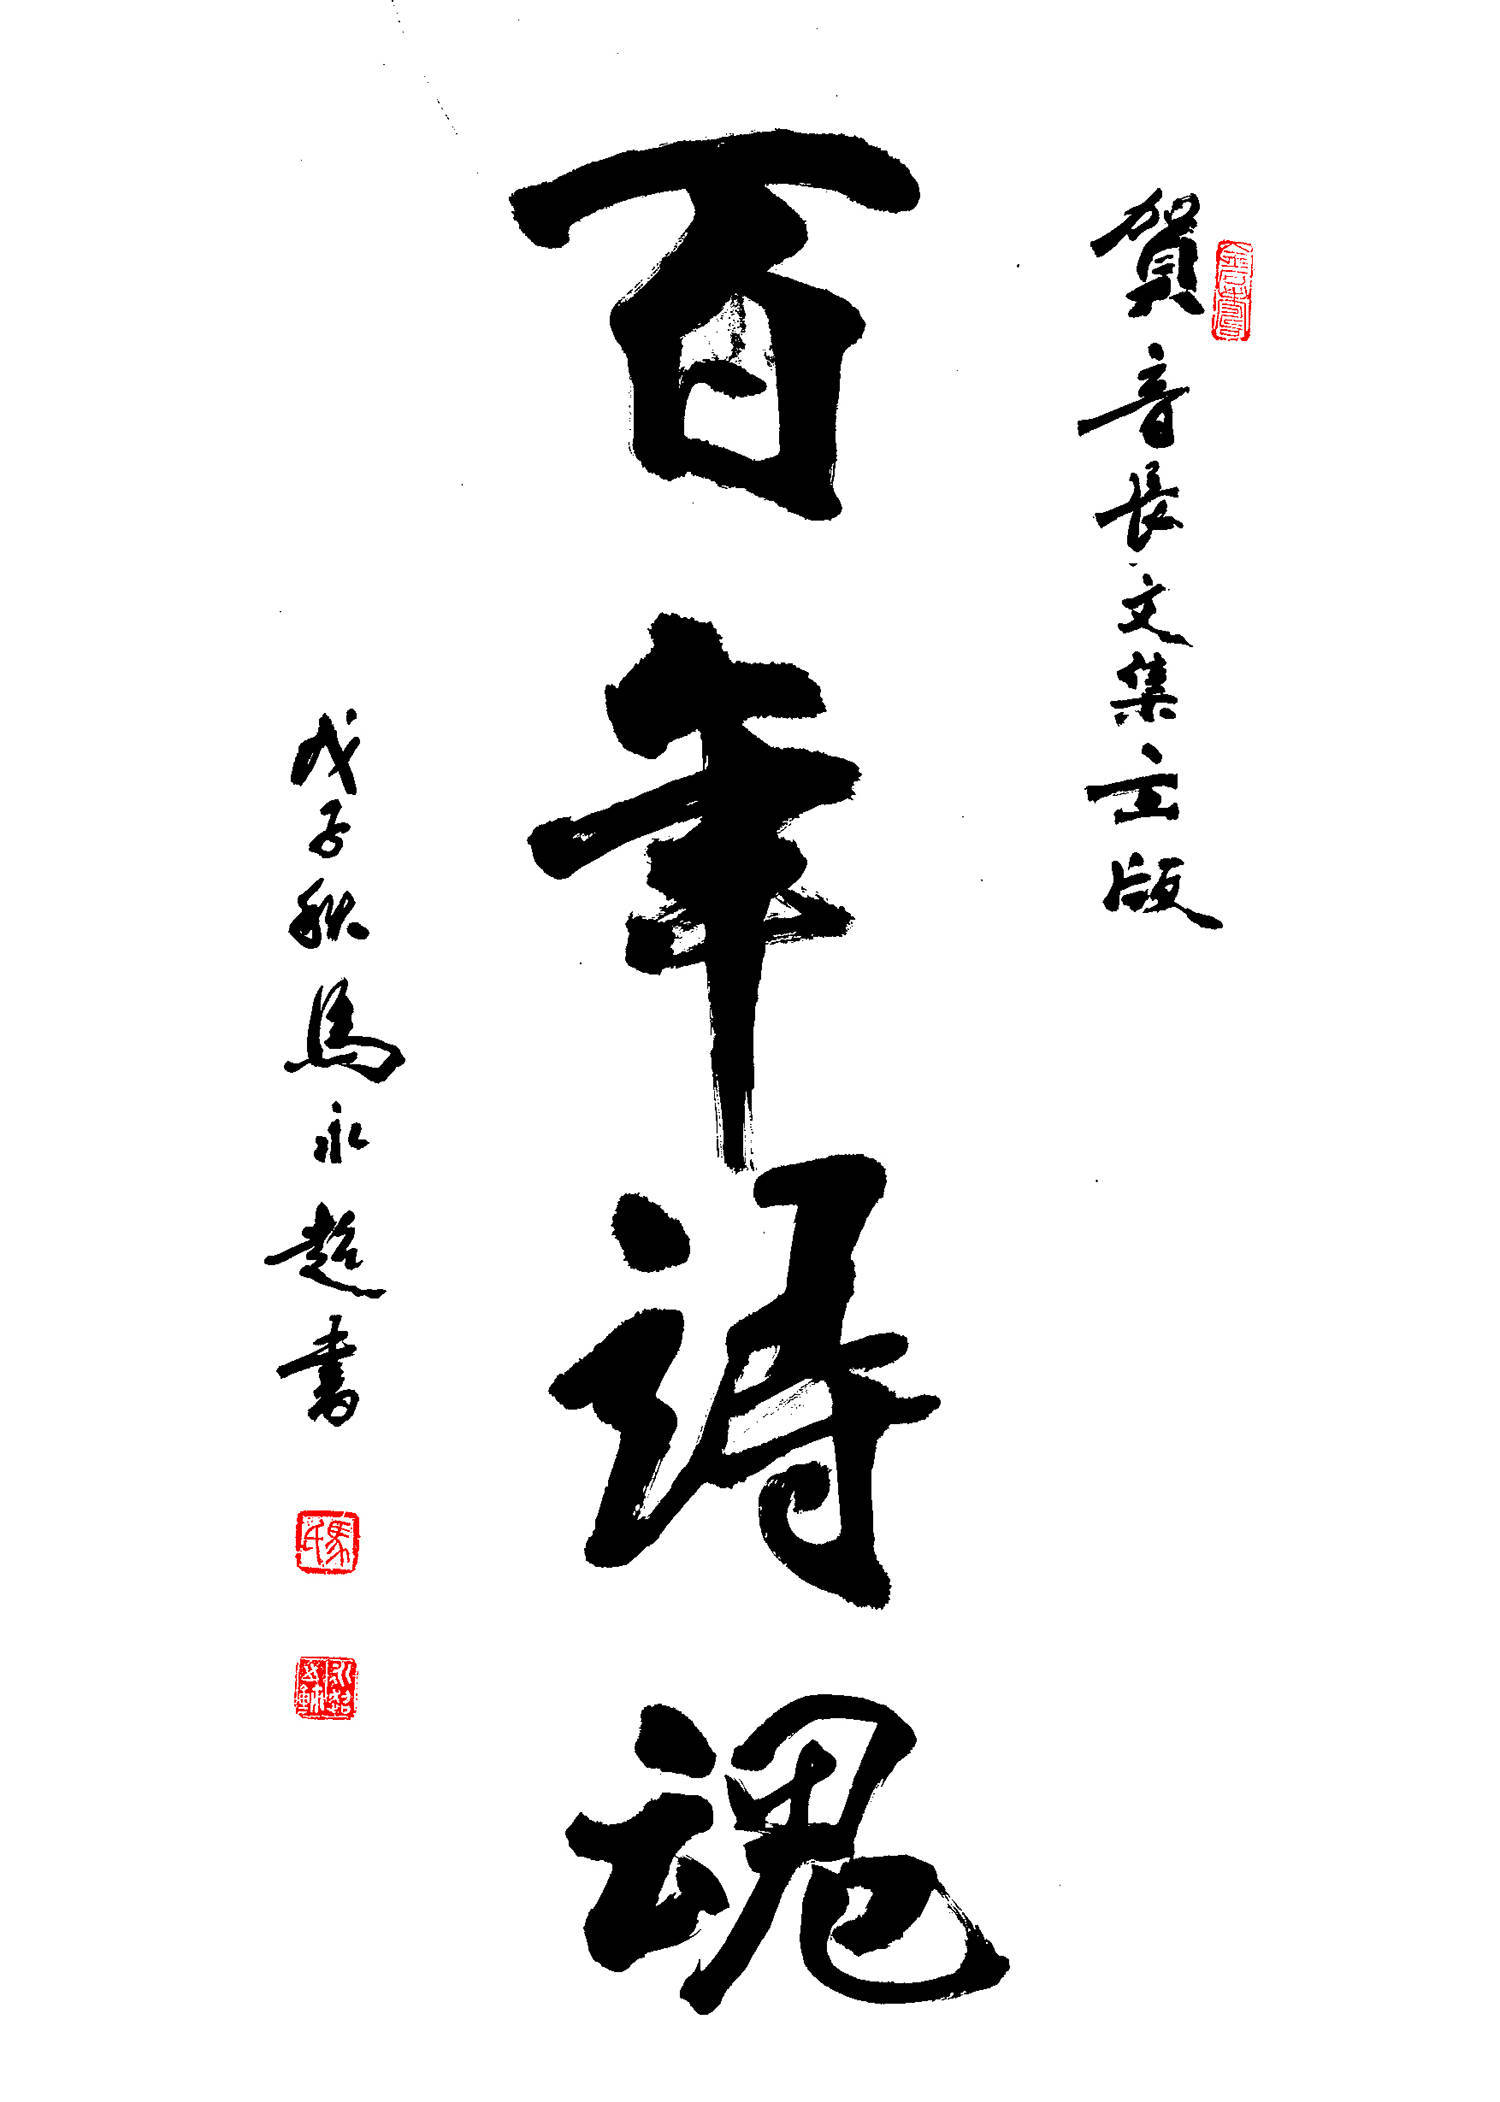 賀音長文集出版
百年詩魂
戊子秋馬永超書
馬氏